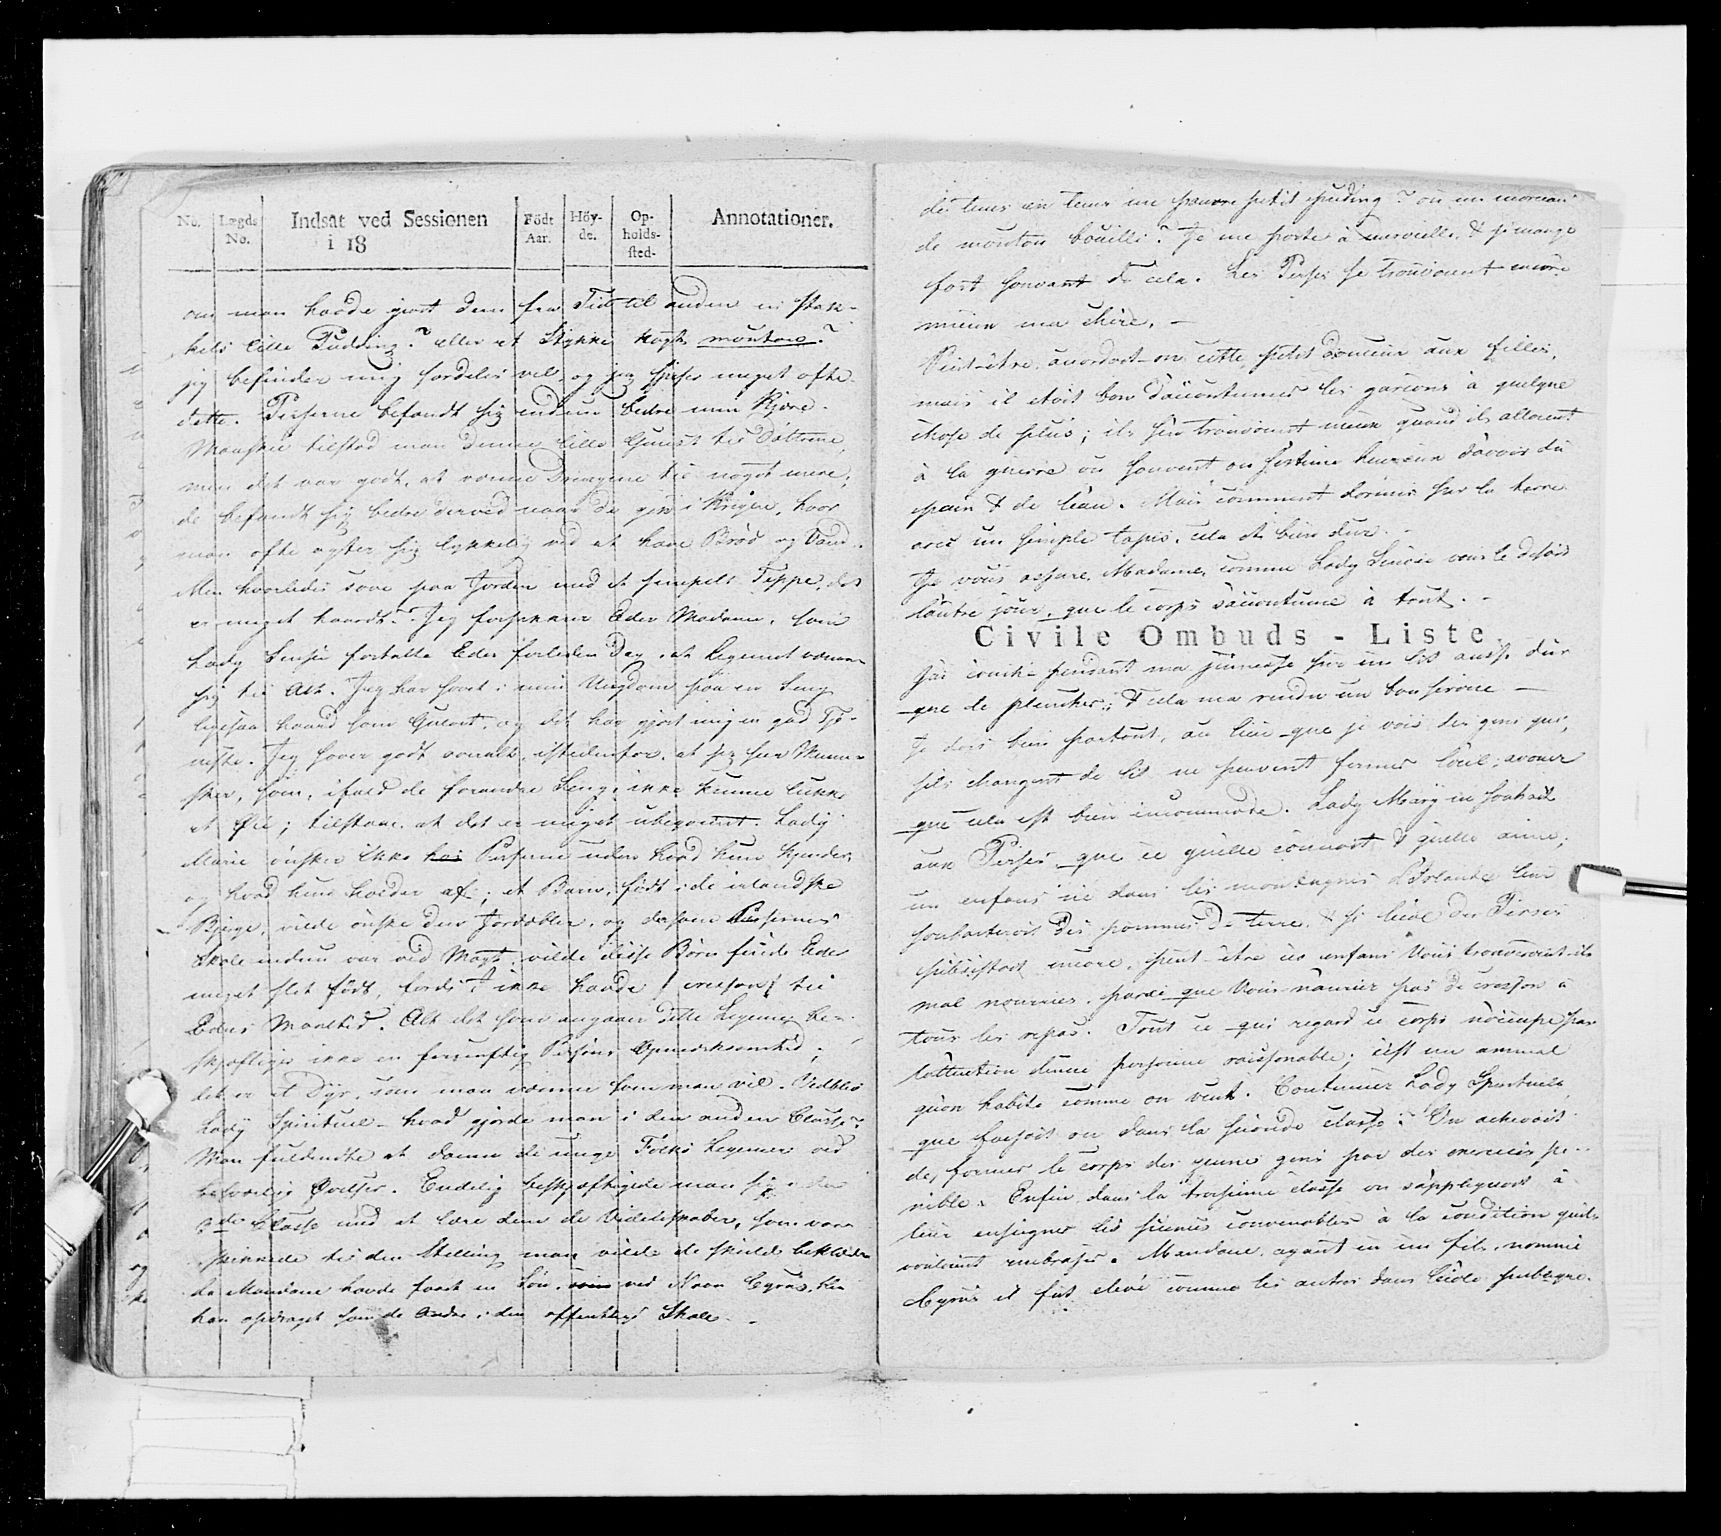 No.
Lægds No.
Indsat ved Sessionen i 18
Födt Aar.
Höy-de.
Op-holds-sted.
Annotationer.
om man havde givet dem fra Tid til anden en stak-
kels lille Pudding? eller et Stykke kogt mouton?
jeg befinder mig særdeles vel, og jeg spiser meget ofte
dette. Perserne befandt sig endnu bedre min Kjære.
Maaskee tilstod man denne lille Gunst til Döttrene,
men det var godt, at vænne Drengene til noget mere;
de befandt sig bedre derved naar de gik i Krigen, hvor
man ofte agter sig lykkelig ved at have Bröd og Vand.
Men hvorledes sove paa Jorden med et simpelt Teppe, det
er meget haardt? Jeg forsikkrer Eder Madame, som
Lady Sensée fortalte Eder forleden Dag, at Legemet vænner
sig til Alt. Jeg har sovet i min Ungdom paa en Seng
ligesaa haard som Gulvet, og det har gjort mig en god Tje-
neste. Jeg sover godt overalt, istedenfor, at jeg seer Menne-
sker, som, ifald de forandre Seng, ikke kunne lukke
et Öie; tilstaae at det er meget ubeqvemt. Lady
Marie önsker ikke hos Perserne uden hvad hun kjender,
og hvad hun holder af; et Barn, födt i de irlandske
Bjerge, vilde önske der Jordæbler, og dersom Persernes
Skole endnu var ved Magt, vilde disse Börn finde Eder
meget slet födt, fordi I ikke havde cresson til
Eders Maaltid. Alt det som angaaer dette Legeme be-
skjæftiger ikke en fornuftig Persons Opmærksomhed;
det er et Dyr, som man vænner som man vil. Vedbliv
Lady Spirituel - hvad gjorde man i den anden Classe?
Man fuldendte at danne de unge Folks Legemer ved
besværlige Övelser. Endelig beskjæftigede man sig i den
3de Classe med at lære dem de Videnskaber, som vare
passende til den Stilling man vilde de skulde beklæde
da Mandane havde faaet en Sön, ved Navn Cyrus, blev
han opdraget som de Andre i den offentlige Skole.
de tems en tems un pauvre petit puding? ou un morceau
de mouton bouilli? Je me porte à merveille, & je mange
fort souvent de cela. Les Perses se trouvoient encore
mieux ma chère. -
Peut-être, accordoit-on cette petite douceur aux filles,
mais il etoit bon d'accoutumer les garçons à quelque
chose de plus; ils s'en trouvoient mieux quand ils alloient
à la guerre ou souvent on s'estime heureux d'avoir du
pain & de l'eau. Mais comment dormir sur la terre
avec un simple tapis, cela est bien dur. -
Je vous assure, Madame, comme Lady Sensée vous le disoit
l'autre jour, que le corps s'accoutume à tout. -
Civile Ombuds - Liste.
J'ai couché pendant ma jeunesse sur un lit aussi dur
que le plancher; & cela m'a rendu un bon service -
Je dors bien partout, au lieu que je vois des gens qui,
s'ils changent de lit ne peuvent fermer l'oeil; avouez
que cela est bien incommode. Lady Mary ne souhaite
aux Perses que ce qu'elle connoit & qu'elle aime;
un enfant né dans les montagnes d'Irlande leur
souhaiteroit des pommes de terre, & si l'école des Perses
subsistoit encore, peut-être ces enfans vous trouveroient-ils
mal nourries, parce que vous n'auriez pas de cresson à
tous les repas. Tout ce qui regarde ce corps n'occupe pas
l'attention d'une personne raisonnable; c'est un animal
qu'on habitue comme on veut. Continuez Lady Spirituel,
que faisoit on dans la seconde classe? On achevoit
de former le corps des jeunes gens par des exercices pe-
nible. Enfin, dans la troisieme classe on s'appliquoit à
leur enseigner les sciences convenables à la condition qu'ils
vouloient embrasser. Mandane, ayant eu un fils, nommé
Cyrus il fut elevé comme les autres dans l'école publique.